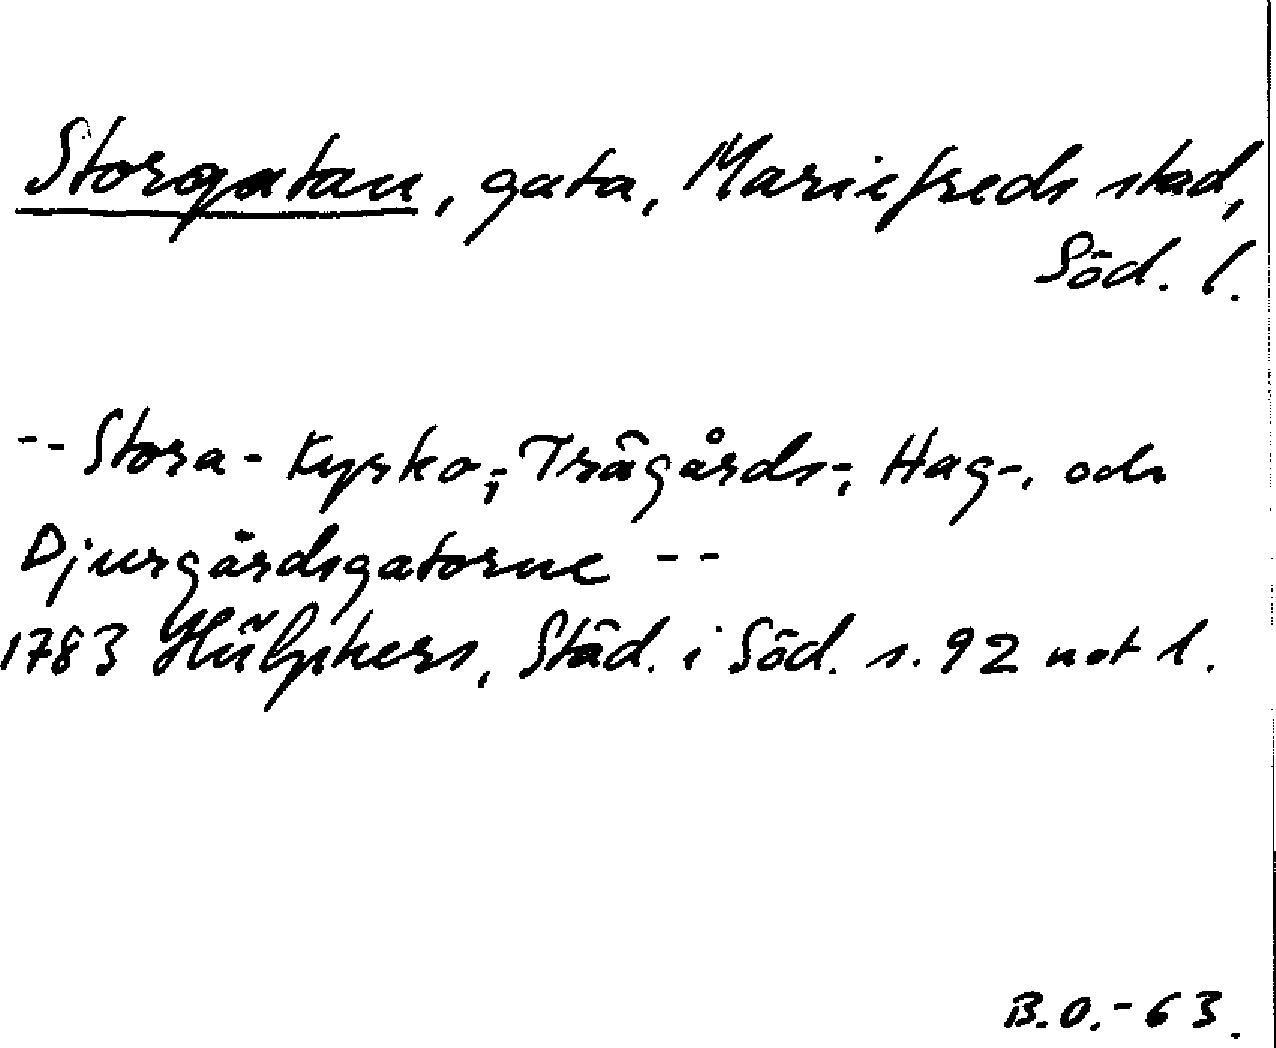 Storgatan, gata, Mariefreds stad,
Söd. l.
-- Stora- Kyrko-, Trägårds-, Hag-, och
Djurgårdsgatorne --
1783 Hülphers, Städ. i Söd. s. 92 not l.
B.O.-63.